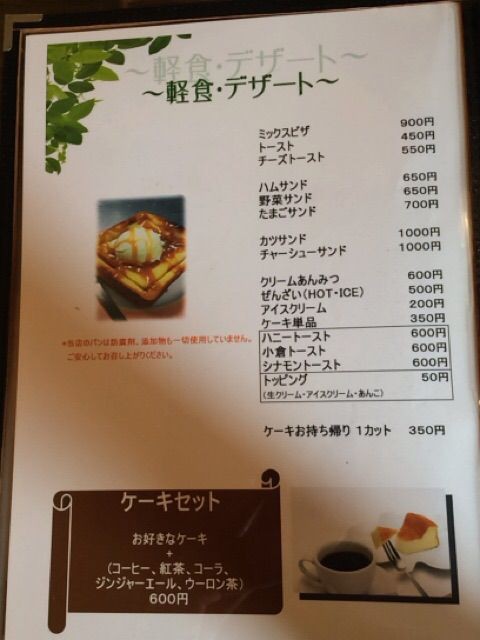 ～軽食・デザート～
～軽食・デザート～
ミックスピザ 900円
トースト 450円
チーズトースト 550円
ハムサンド 650円
野菜サンド 650円
たまごサンド 700円
カツサンド 1000円
チャーシューサンド 1000円
クリームあんみつ 600円
ぜんざい（HOT・ICE） 500円
アイスクリーム 200円
ケーキ単品 350円
ハニートースト 600円
小倉トースト 600円
シナモントースト 600円
トッピング 50円
（生クリーム・アイスクリーム・あんこ）
*当店のパンは防腐剤、添加物も一切使用していません。
ご安心してお召し上がりください。
ケーキお持ち帰り 1カット 350円
ケーキセット
お好きなケーキ
+
（コーヒー、紅茶、コーラ、
ジンジャーエール、ウーロン茶）
600円